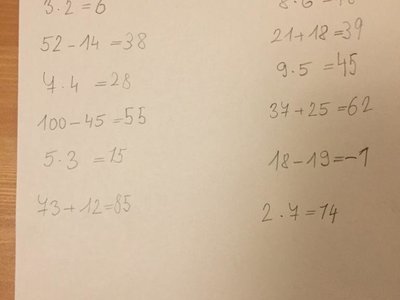 3·2=6
52-14=38
7·4=28
100-45=55
5·3=15
73+12=85
21+18=39
9·5=45
37+25=62
18-19=-1
2·7=14